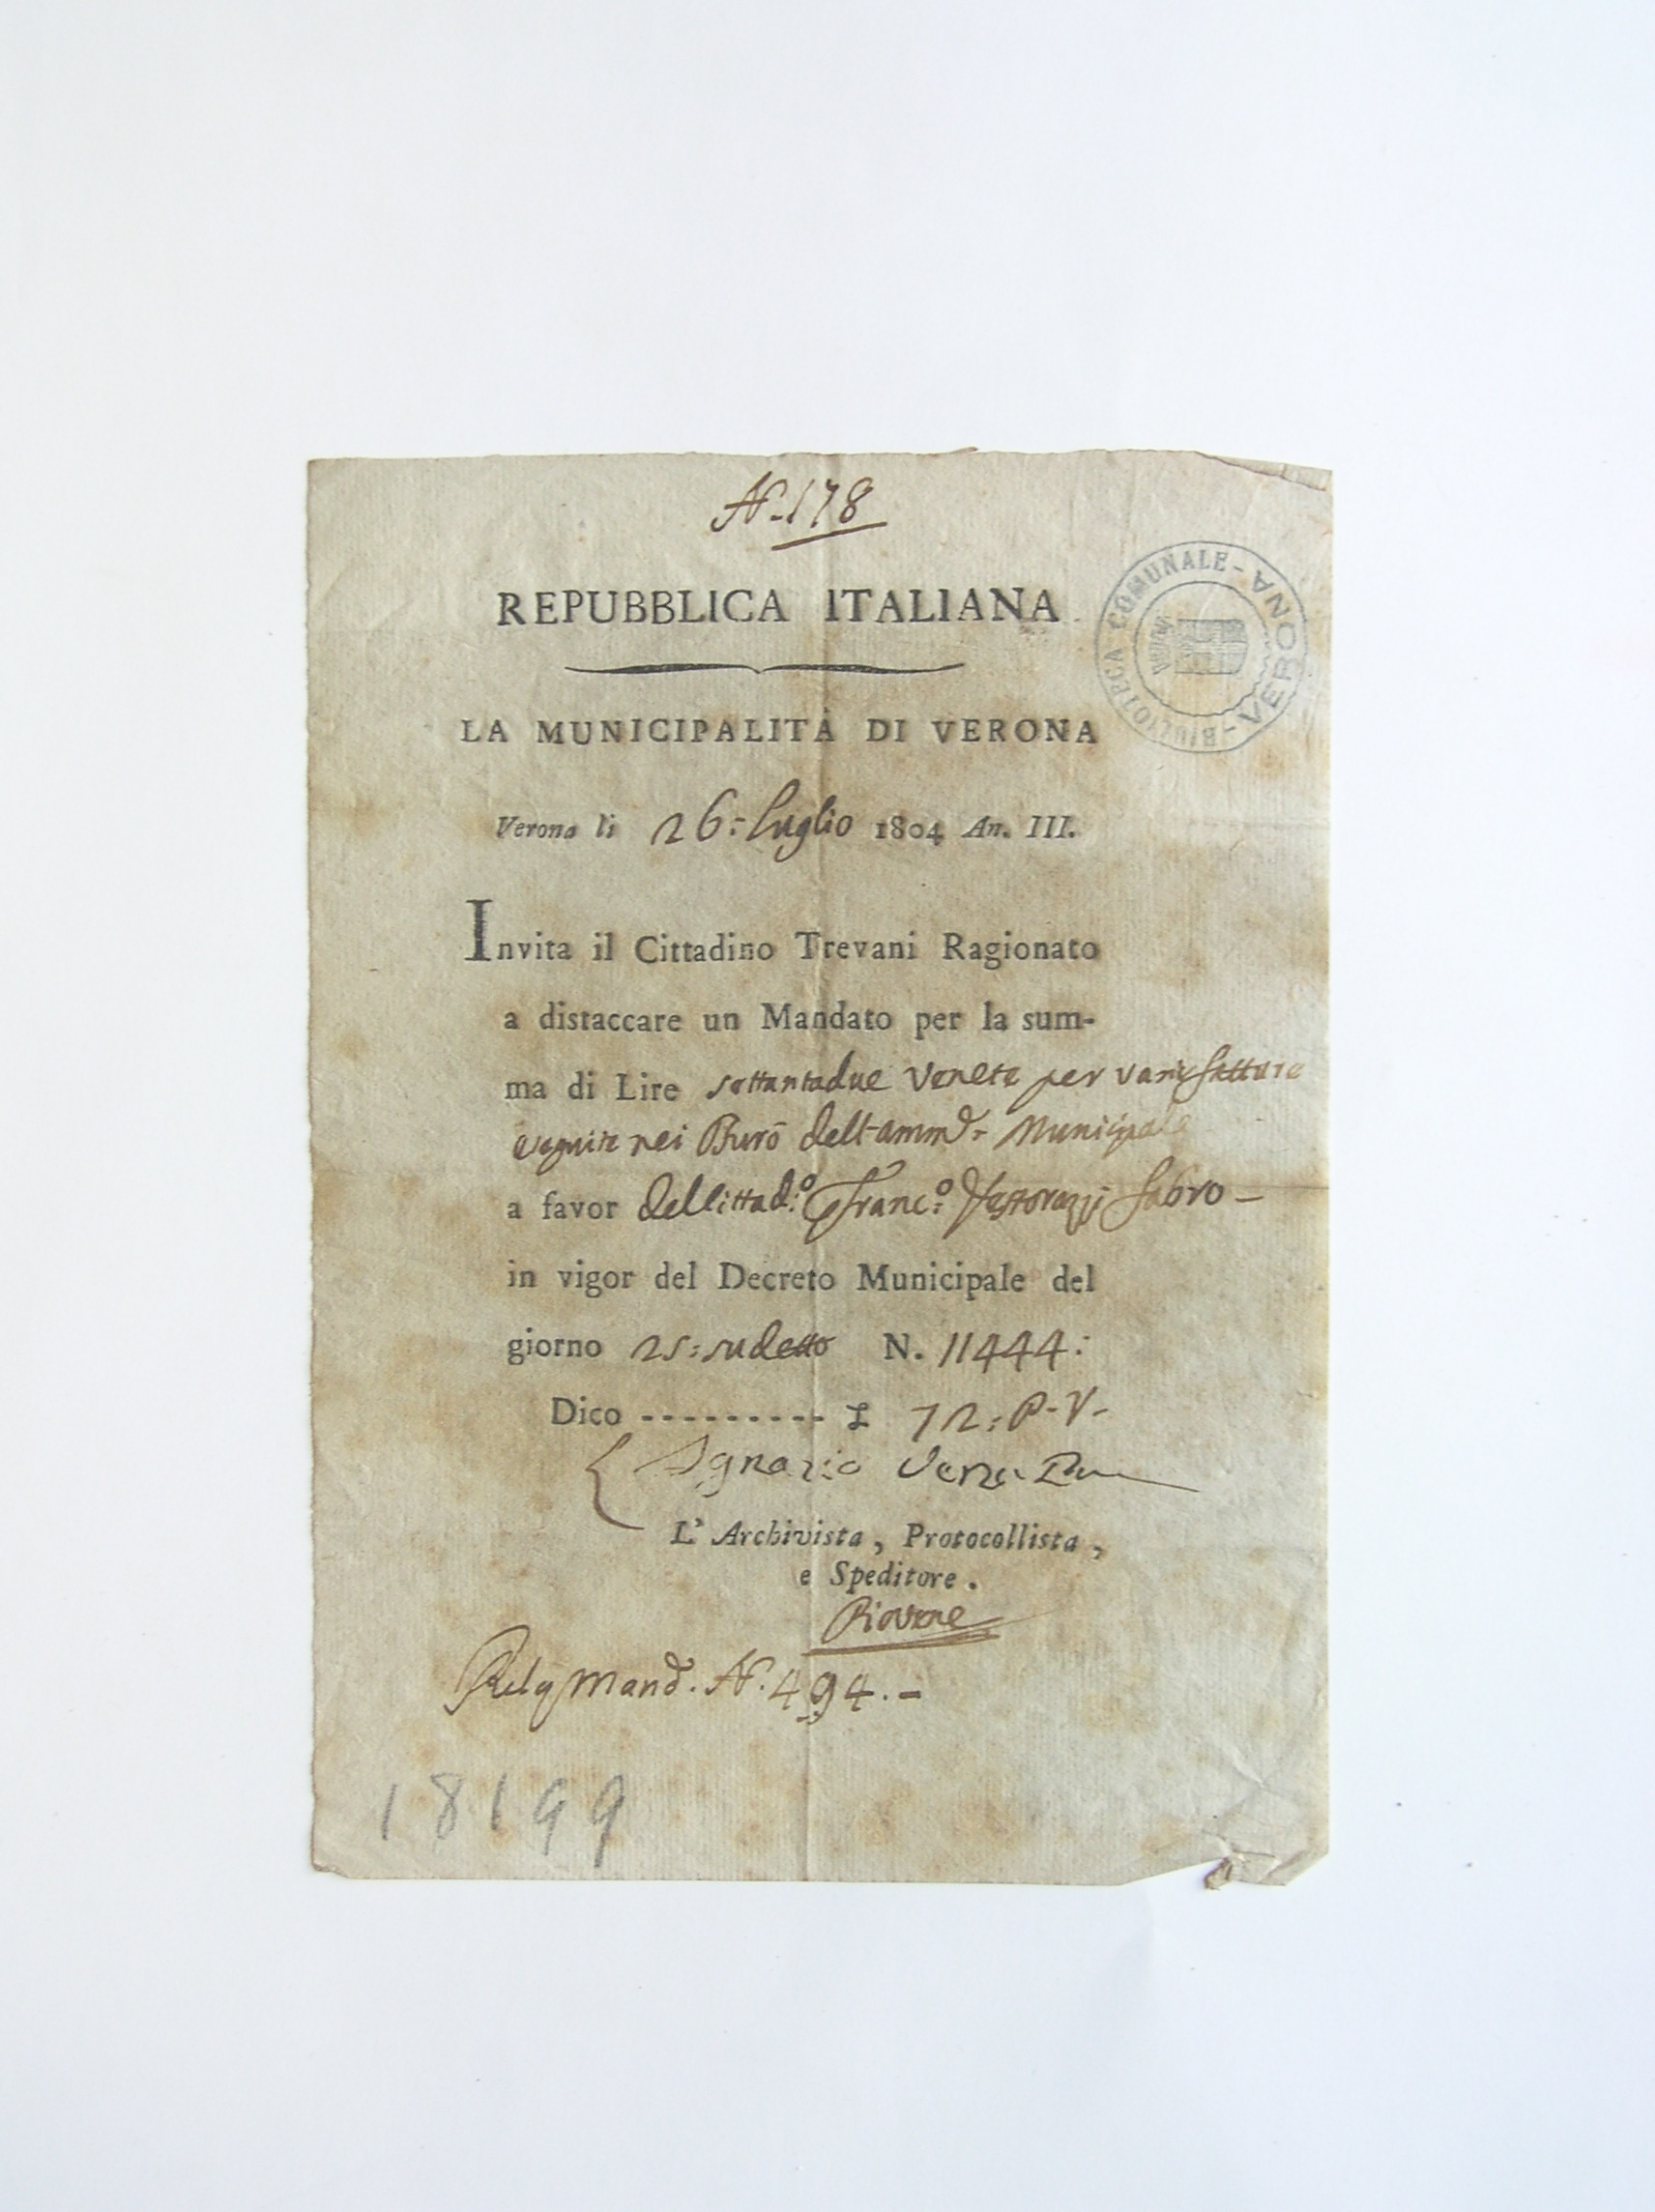 N. 178
REPUBBLICA ITALIANA
BIBLIOTECA COMUNALE - VERONA -
LA MUNICIPALITÀ DI VERONA
Verona li 26: Luglio 1804 An. III.
Invita il Cittadino Trevani Ragionato
a distaccare un Mandato per la sum-
ma di Lire settantadue Venete per varie fatture
eseguite nei Burò dell'ammd. Municipale
a favor del Cittad.º Franc.º fabro -
in vigor del Decreto Municipale del
giorno 25: sudetto N. 11444:
Dico --------- £ 72: P. V.
Ignazio
L' Archivista, Protocollista,
e Speditore.
Piovene
Mand. N. 494. -
18199